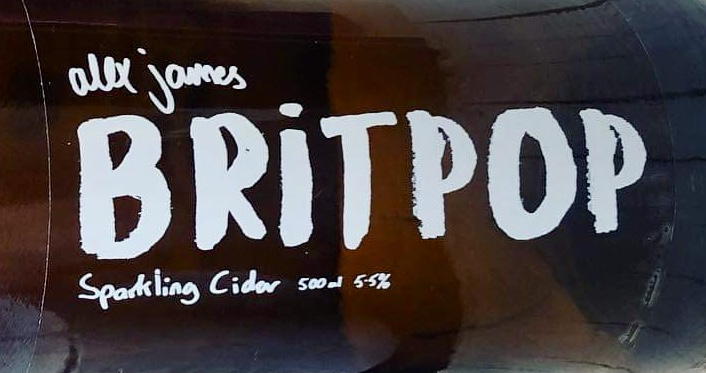 alex james
BRiTPOP
Sparkling Cider 500ml 5.5%